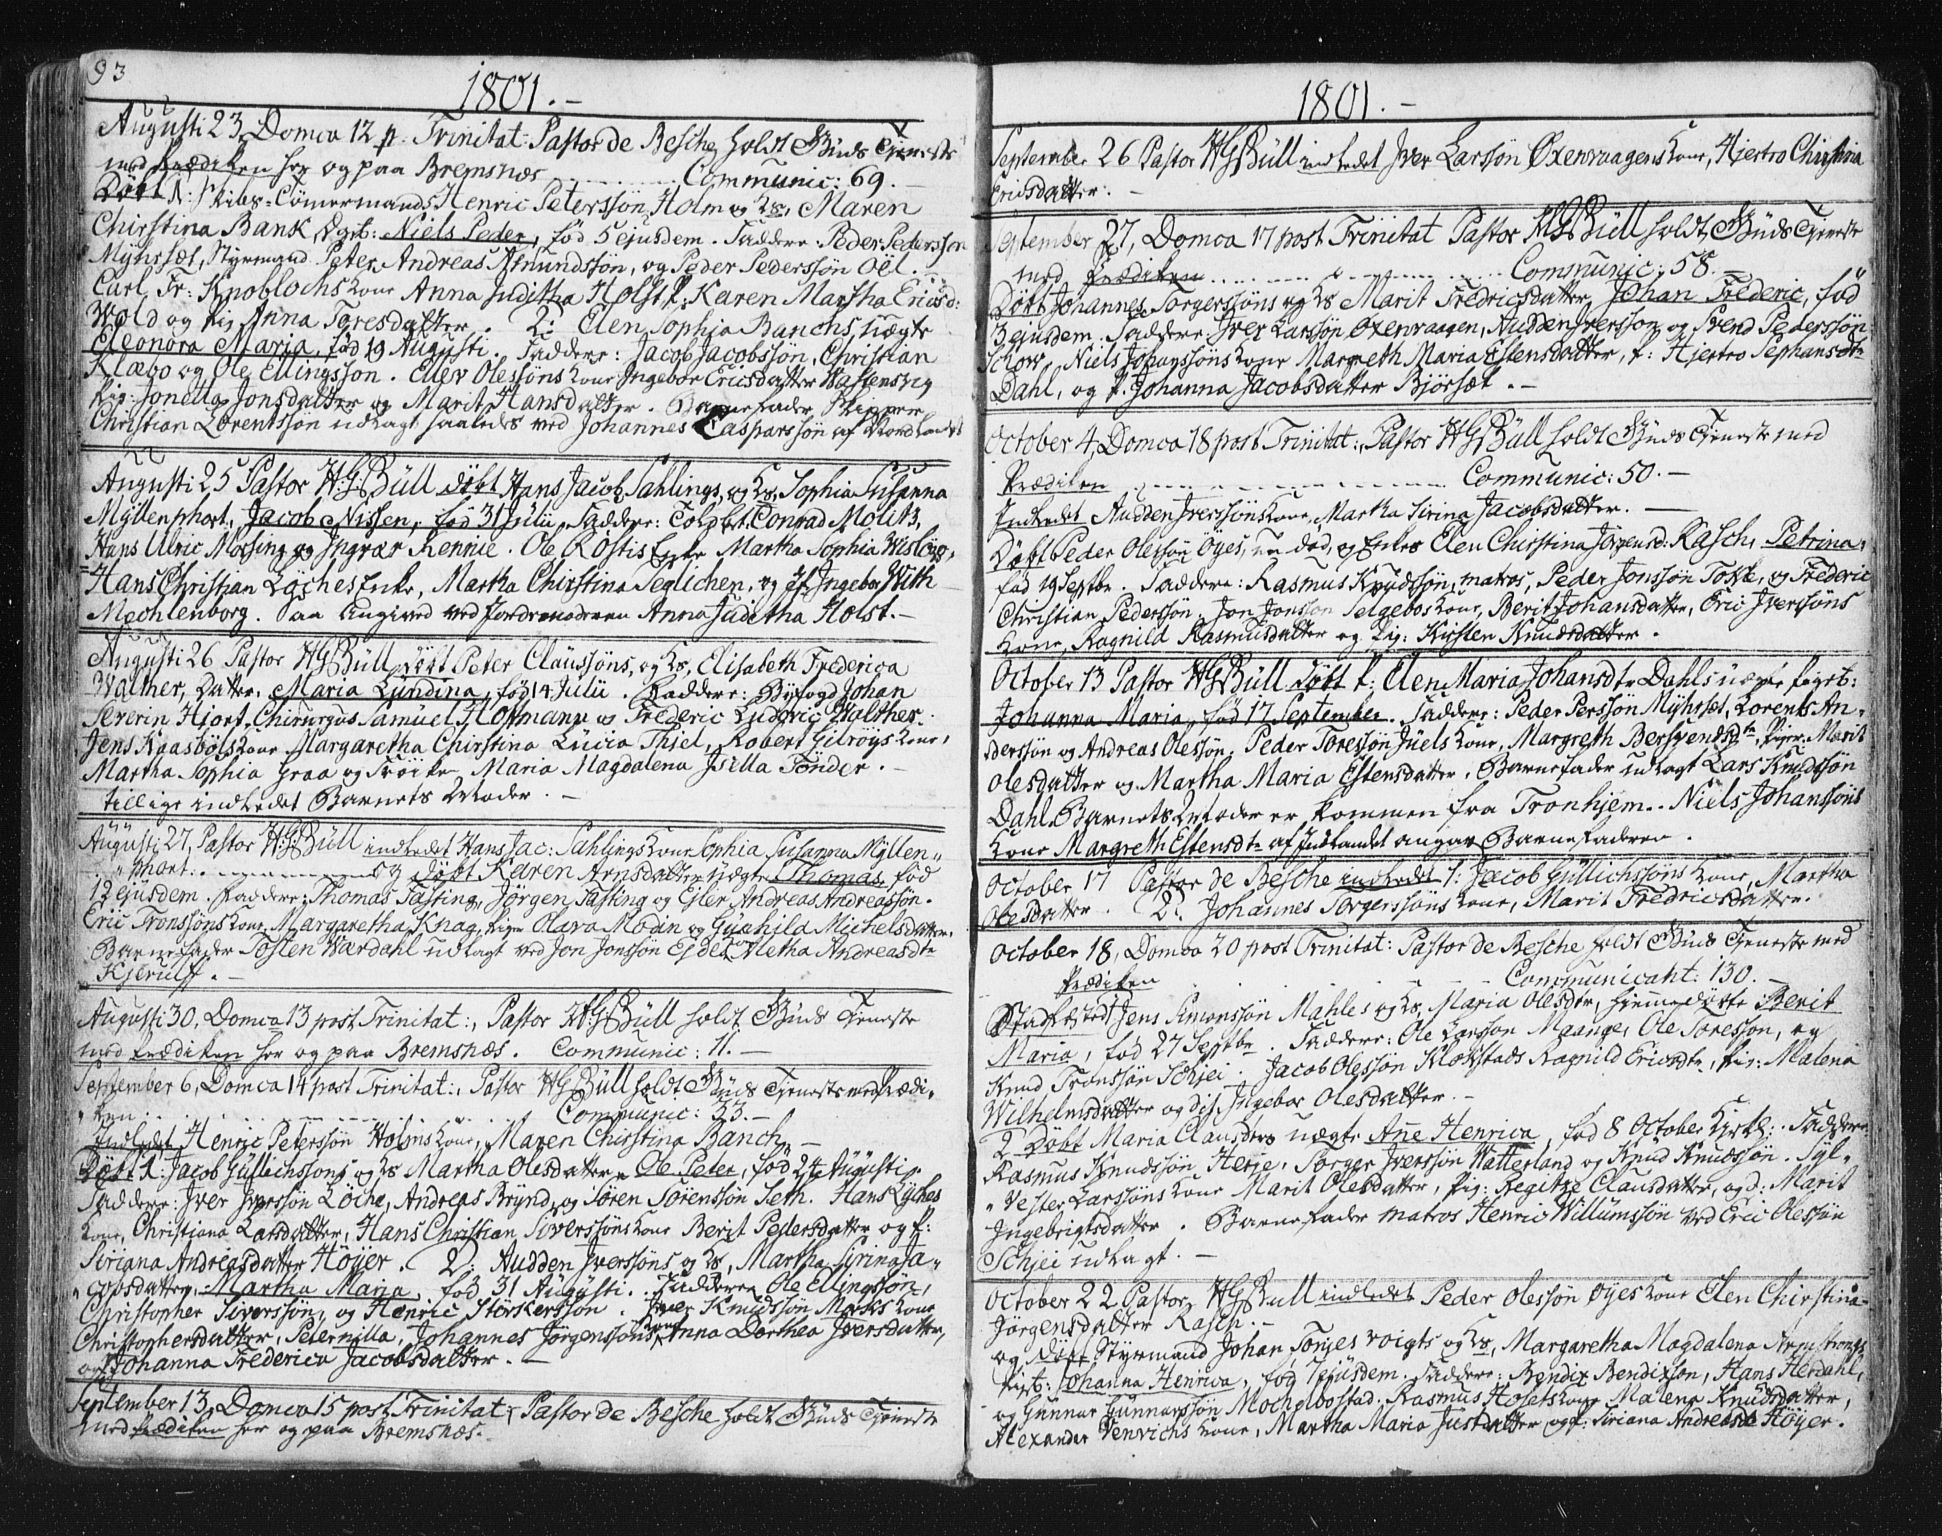 93
1801. –
Augusti 23, Domca 12 p. Trinitat: Pastor de Besche holdt Guds Tjeneste
med Prædiken her og paa Bremsnæs ........ Communic: 69. –
Døbt N: 1 Skibs-Tømermands Henric Peterssøn Holm og Hs. Maren
Christina Bank, Dgb: Niels Peder, fød 5 ejusdem. Faddere. Peder Pederssøn
Myhrsæt, Styrmand Peter Andreas Amundssøn, og Peder Pederssøn Oël. –
Carl Fr: Knoblochs kone Anna Juditha Holst, f: Karen Martha Ericsd:
Wold og Pig Anna Toresdatter. 2: Elen Sophia Banchs uægte
Eleonora Maria, fød 19 Augusti. Faddere: Jacob Jacobssøn, Christian
Klæbo og Ole Ellingssøn. Ellev Olessøns kone Ingebor Ericsdatter Wastensvig
Pig: Jonetta Jonsdatter og Marit Hansdatter. Barnefader Skipper
Christian Lorentssøn udlagt saaledes ved Johannes Casparssøn af Nordlandet
Augusti 25 Pastor H.G. Büll døbt Hans Jacob Sahlings, og Hs. Sophia Susanna
Myllenphort, Jacob Nissen, fød 31 Julii. Faddere: Toldbet. Conrad Moltz,
Hans Ulric Møsing og Ingvær Rennie. Ole Rostis Enke Martha Sophia Wisløng,
Hans Christian Løches Enke, Martha Christina Seglichen, og Jf. Ingebor With
Mechlenborg. Saa Angived ved Jordemoderen Anna Juditha Holst. –
Augusti 26 Pastor H G Büll døbt Peter Claussøns, og Hs. Elisabeth Frederica
Walther, Datter, Maria Lundina, fød 14 Julii. Faddere: Byfogd Johan
Severin Hjort, Chirurgus Samuel Hoffmann og Frederic Ludovic Walther.
Jens Kaasbøls kone Margaretha Christina Lucia Thiel, Robert Gilroys kone,
Martha Sophia Graa og Frøiken Maria Magdalena Jsella Tønder. –
tillige indledet Barnets Moder. –
Augusti 27, Pastor H.G. Büll indledet Hans Jac: Sahlings kone Sophia Susanna Myllen„
„phort. .......... og døbt Karen Arnsdatters uægte Thomas, fød
12 ejusdem. Faddere: Thomas Fasting, Jørgen Fasting og Esler Andreas Andreassøn.
Eric Tronssøns kone Margaretha Knag, Piger Olava Modin og Gunhild Michelsdatter.
Barnefader Tosten Wardahl udlagt ved Jon Jonssøn Ejde, Aletha Andreasdtr
Kjerulf. –
Augusti 30, Domca 13 post Trinitat:, Pastor H.G. Büll holdt Guds Tjeneste
med Prædiken her og paa Bremsnæs. Communic: 11. –
September 6, Domca 14 post Trinitat:, Pastor H G Büll holdt Guds Tjeneste med Prædi„
„ken ........ Communic: 33. –
Indledet Henric Peterssøn Holms kone, Maren Christina Banch, –
Døbt 1: Jacob Gullichssøns og Hs Martha Olesdatter, Ole Peter, fød 24 Augusti.
Faddere: Jver Jverssøn Løche, Andreas Brynd og Søren Sørenssøn Seth. Hans Lyches
kone, Christiana Larsdatter, Hans Christian Soverssøns kone Berit Pedersdatter og P:
Siriana Andreasdatter Höyer. 2: Audden Jverssøns og Hs, Martha Sirina Ja„
„cobsdatter, Martha Maria, fød 31 Augusti. Faddere: Ole Ellingssøn,
Christopher Siverssøn, og Henric Størkerssøn. Jver Knudssøn Mørks kone
Christophersdatter, Peternilla, Johannes Jørgenssøns kone Anna Dorthea Jversdatter,
og Johanna Frederica Jacobsdatter. –
September 13, Domca 15 post Trinitat:, Pastor de Besche holdt Guds Tjeneste
med Prædiken her og paa Bremsnæs.
1801. –
September 26 Pastor H G Büll indledet Jver Larssøn Øxenvaagens kone, Hjertro Christina
Ericsdatter. –
September 27, Domca 17 post Trinitat Pastor H G Büll holdt Guds Tjeneste
med Prædiken ........ Communic: 58. –
Døbt Johannes Torgerssøns og Hs Marit Fredricsdatter, Johan Frederic, fød
3 ejusdem. Faddere: Jver Larssøn Øxenvaagen, Audden Jverssøn og Svend Pederssøn
Schow, Niels Johanssøns kone Margreth Maria Estensdatter, P: Hjertro Stephansdtr
Dahl, og P. Johanna Jacobsdatter Bjørsæt. –
October 4, Domca 18 post Trinitat:, Pastor H G Büll holdt Guds Tjeneste med
Prædiken ........ Communic: 50. –
Indledet Audden Jverssøns kone, Martha Sirina Jacobsdatter. –
Døbt Peder Olessøn Öyes, nu død, og Enkes Elen Christina Jörgensd: Rasch, Petrina,
fød 19 Septbr. Faddere: Rasmus Knudssøn, matros, Peder Jonssøn Tokle, og Frederic
Christian Pederssøn, Jon Jonssøn Telgebos kone, Berit Johansdatter, Eric Jverssøns
kone, Ragnild Rasmusdatter og Pig: Kirsten Knudsdatter.
October 13 Pastor H G Büll døbt P: Elen Maria Johansdtr Dahls uægte Pigeb:
Johanna Maria, fød 17 September. Faddere: Peder Perssøn Myhrsæt, Lorents An„
derssøn og Andreas Olessøn. Peder Toressøn Juels kone, Margreth Bersvendsdtr, Piger: Marit
Olesdatter og Martha Maria Estensdatter. Barnefader udlagt Lars Knudssøn
Dahl. Barnets Moder er kommen fra Tronhjem. Niels Johanssøns
kone Margreth Estensdtr af Indlandet angav Barnefaderen.
October 17 Pastor de Besche indledet 1: Jacob Gullichssøns kone, Martha
Olesdatter. 2: Johannes Torgerssøns kone, Marit Fredricsdatter.
October 18, Domca 20 post Trinitat: Pastor de Besche holdt Guds Tjeneste med
Prædiken ........ Communicant: 130. –
Stadfæsted Jens Simonssøn Mahles og Hs, Maria Olesdtr, hjemmedøbte Berit
Maria, fød 27 Septbr. Faddere: Ole Larssøn Maange, Ole Toressøn, og
Knud Tronssøn Schjei. Jacob Olessøn Klokstads Ragnild Ericsdtr, Pig: Malena
Wilhelmsdatter og dito Ingebor Olesdatter. –
2 Døbt Maria Clausdtrs uægte Ane Henrica, fød 8 October Kirk:. Faddere
Rasmus Knudssøn Herje, Torger Jverssøn Watterland og Knud Knudssøn. Syl„
„vester Larssøns kone Marit Olesdatter, Pig: Regitze Clausdatter, og d: Marit
Ingebrigtsdatter. Barnefader matros Henric Willumssøn ved Eric Olessøn
Schjei udlagt. –
October 22 Pastor H G Büll indledet Peder Olessøn Öyes kone Elen Christina
Jørgensdatter Rasch. –
og døbt Styrmand Johan Torjes Voigts og Hs, Margaretha Magdalena Armstrongs,
Pigb: Johanna Henrica, fød 1 ejusdem. Faddere: Bendix Bendixson, Hans Herdahl,
og Gunnar Gunnarssøn Mochelbostad. Rasmus Hosets kone Malena Knudsdatter,
Alexander Venrichs kone, Martha Maria Justdatter og P: Siriana Andreasd Höyer.